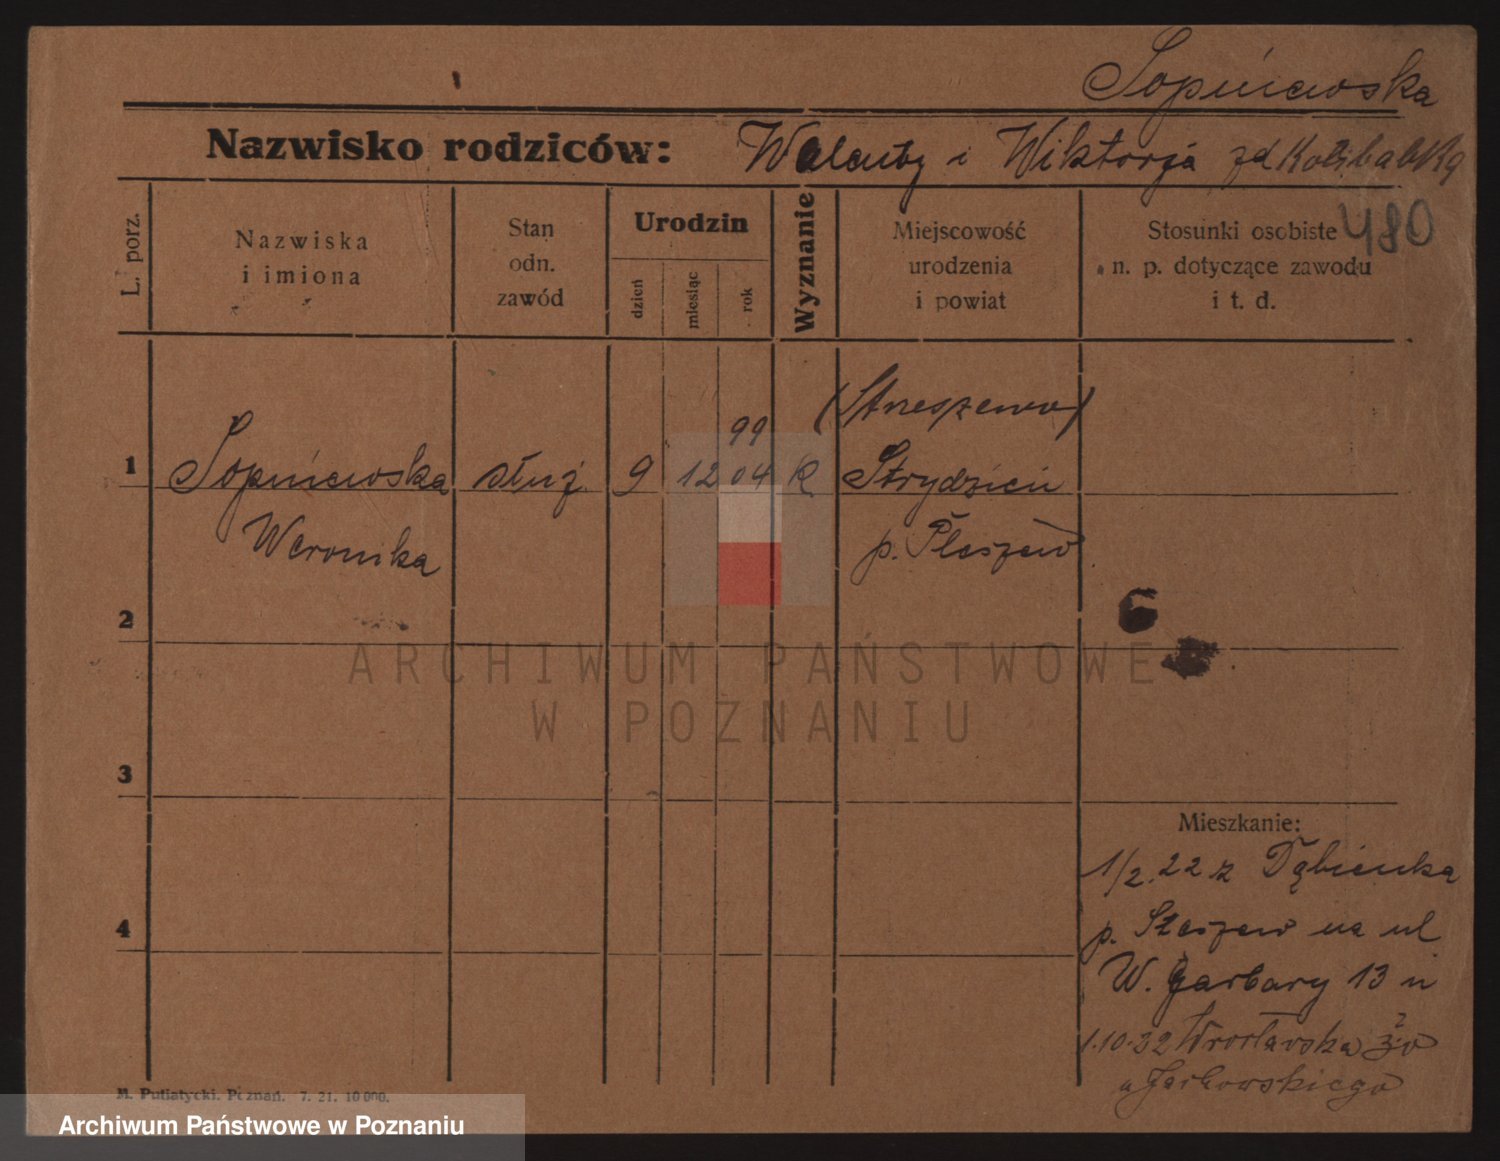 Sopniewska
Nazwisko rodziców: Walenty i Wiktorja zd
480
L. porz.
Nazwiska
i imiona
Stan
odn.
zawód
Urodzin
dzień
miesiąc
rok
Wyznanie
Miejscowość
urodzenia
i powiat
Stosunki osobiste
n. p. dotyczące zawodu
i t. d.
(Streszewo)
99
1 Sopniewska służ. 9 12 04 K Strydzień
Weronika p. Pleszew
2
3
4
Mieszkanie:
1/2.22 z Dąbienka
p. na ul
W. Garbary 13 u
1.10.32 Wrocławska
u Jarkowskiego
M. Putiatycki. Poznań. 7. 21. 10 000.
ARCHIWUM PAŃSTWOWE
W POZNANIU
Archiwum Państwowe w Poznaniu